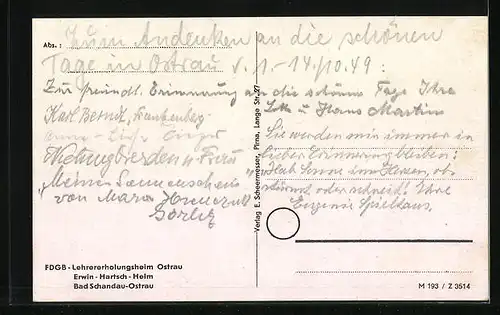 Abs.:
Zum Andenken an die schönen
Tage in Ostrau v. 1.-14./10.49:
Zur freundl. Erinnerung an die schönen Tage Ihre
Lotte u. Hans Martin
Karl Berndt, Frankenberg
u. Frau
"Meinen Sonnenschein"
von
Görlitz
Sie werden mir immer in
lieber Erinnerung bleiben:
"Hab Sonne im Herzen, ob's
stürmt oder schneit! Ihre
Eugenie Spielhaus.
Verlag E. Scheermesser, Pirna, Lange Str. 27
FDGB - Lehrererholungsheim Ostrau
Erwin - Hartsch - Heim
Bad Schandau-Ostrau
M 193 / Z 3514